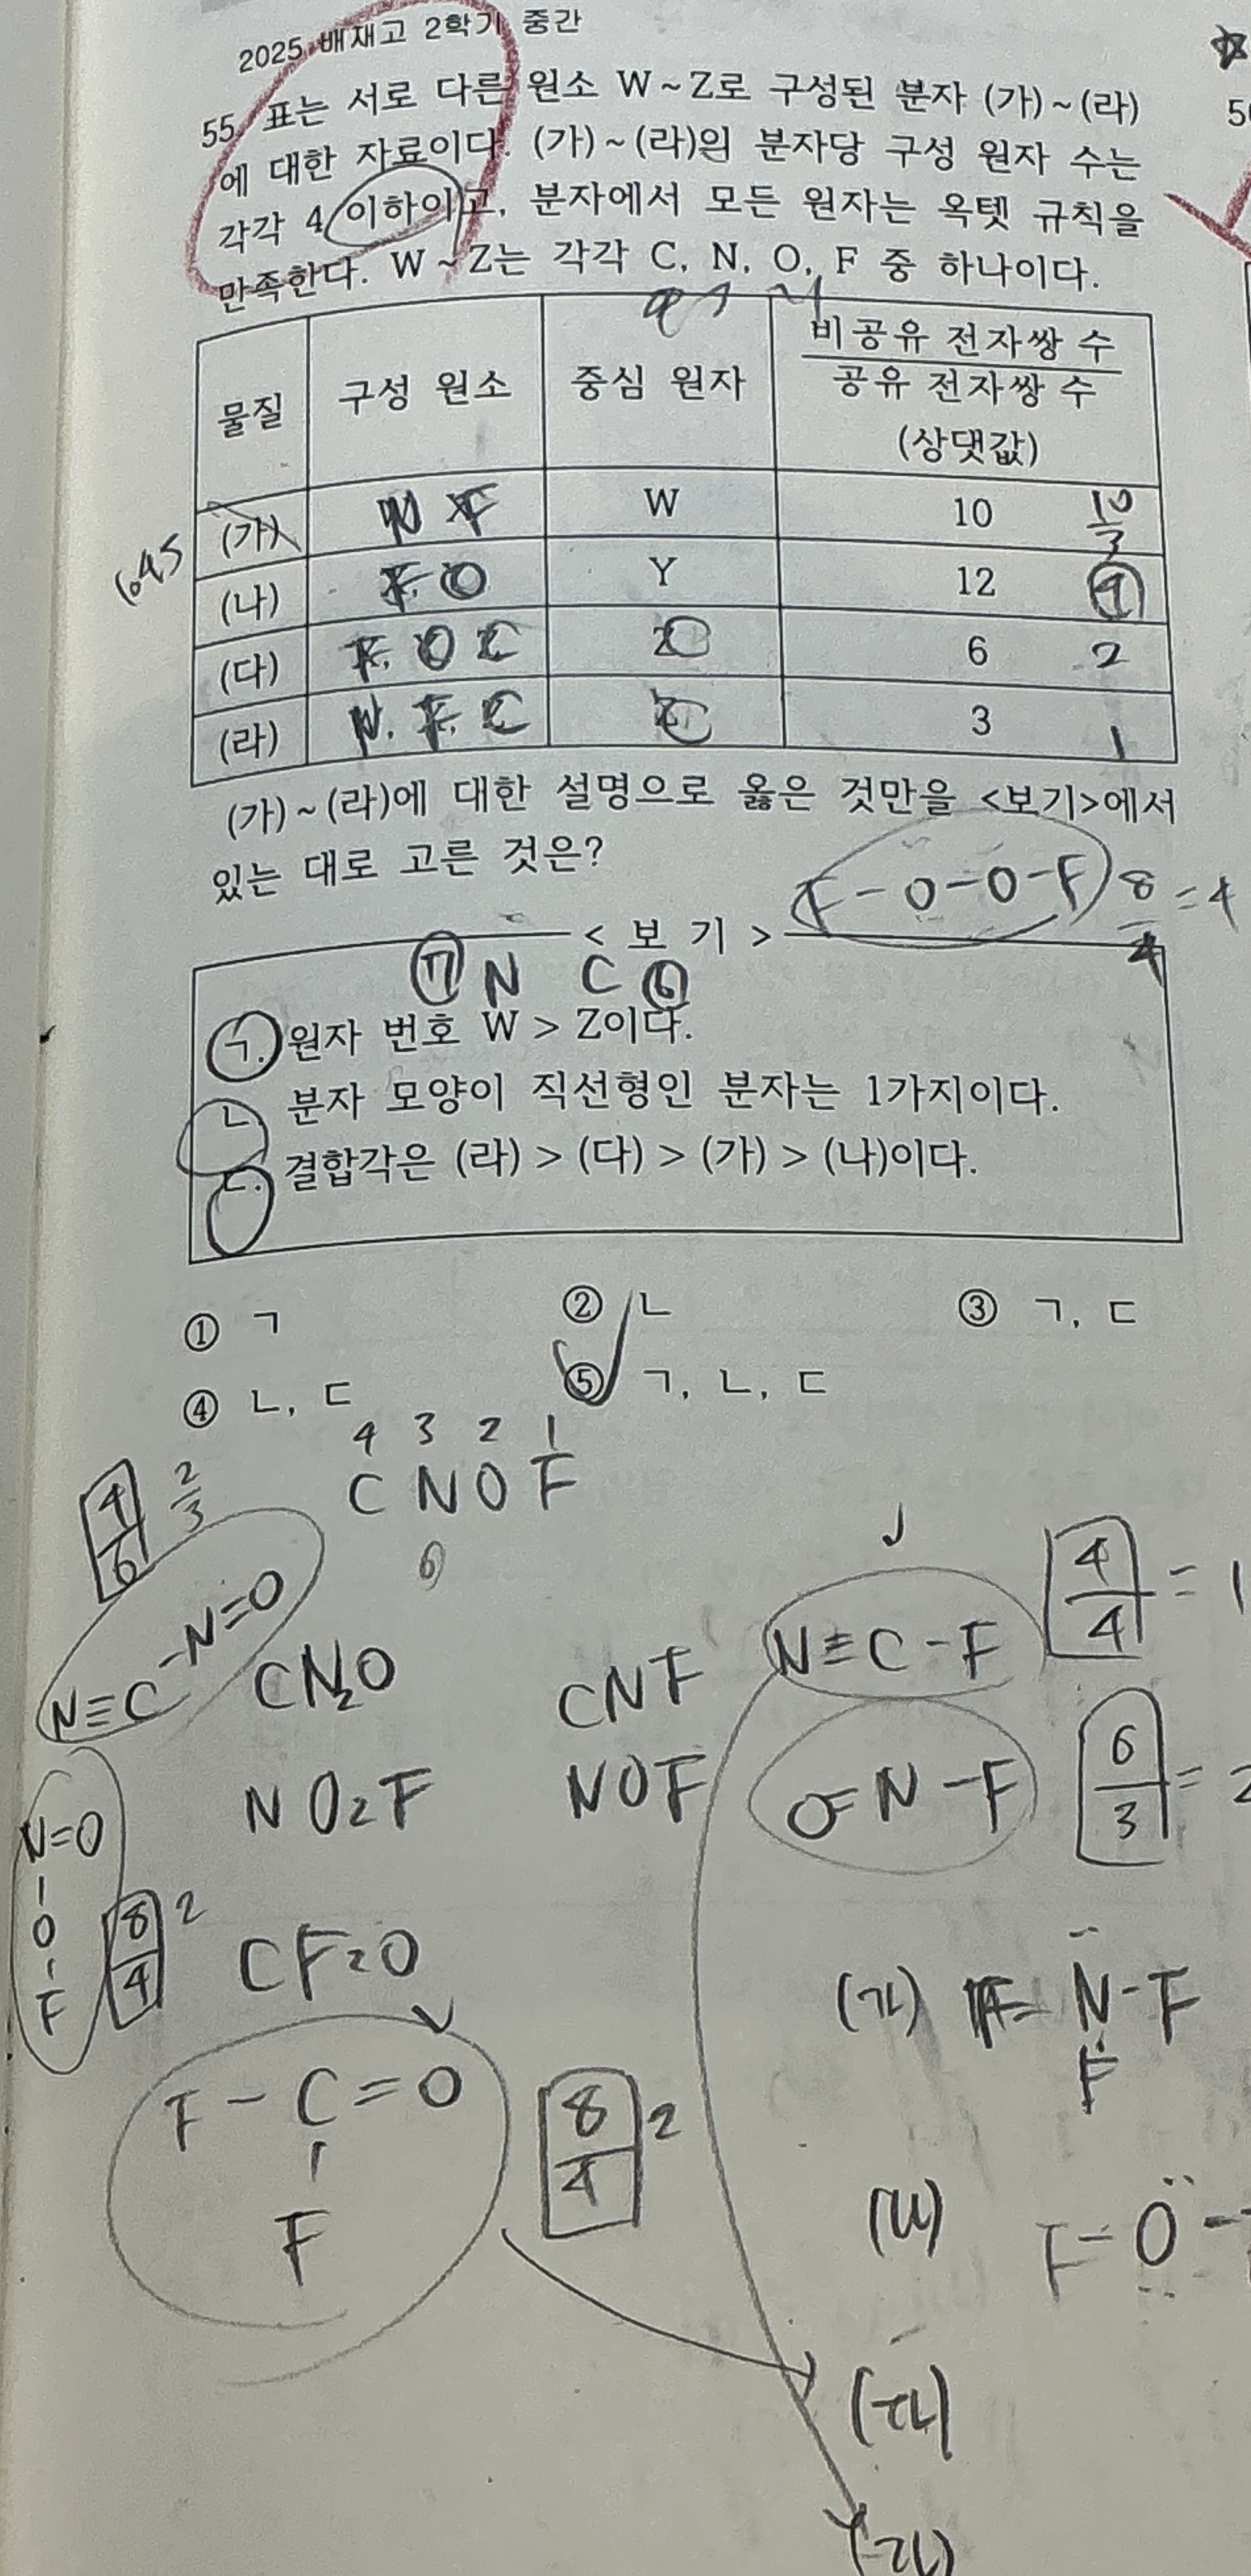 2025 배재고 2학기 중간
55. 표는 서로 다른 원소 W~Z로 구성된 분자 (가)~(라)
에 대한 자료이다. (가)~(라)의 분자당 구성 원자 수는
각각 4 이하이고, 분자에서 모든 원자는 옥텟 규칙을
만족한다. W~Z는 각각 C, N, O, F 중 하나이다.
물질 구성 원소 중심 원자 비공유 전자쌍 수
공유 전자쌍 수
(상댓값)
(가) W 10 10/3
(나) Y 12 4
(다) 6 2
(라) 3 1
645
(가)~(라)에 대한 설명으로 옳은 것만을 <보기>에서
있는 대로 고른 것은?
F-O-O-F 8/4 = 4
<보 기>
N C 6
ㄱ. 원자 번호 W > Z이다.
ㄴ. 분자 모양이 직선형인 분자는 1가지이다.
ㄷ. 결합각은 (라) > (다) > (가) > (나)이다.
① ㄱ ② ㄴ ③ ㄱ, ㄷ
④ ㄴ, ㄷ ⑤ ㄱ, ㄴ, ㄷ
4 3 2 1
C N O F
4/6 2/3
6
N≡C-N=O
CN2O CNF N≡C-F 4/4 = 1
NO2F NOF O=N-F 6/3 = 2
N=O
O
F
8/4 2
CF2O
(가) N-F
F
F-C=O 8/4 2
F
(나) F-O-
(다)
(라)